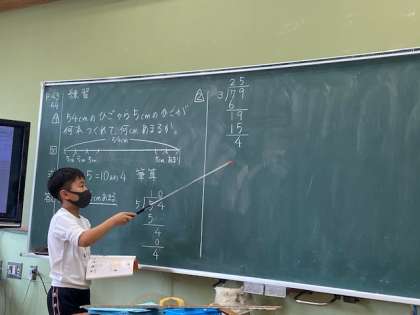 練習
54cmのひごから5cmのひごが
何本つくれて、何cmあまるか。
54cm
5cm 5cm 5cm
5cm あまり
5=10あまり4
筆算
あまる
10
5)54
5
4
0
4
②
25
3)79
6
19
15
4